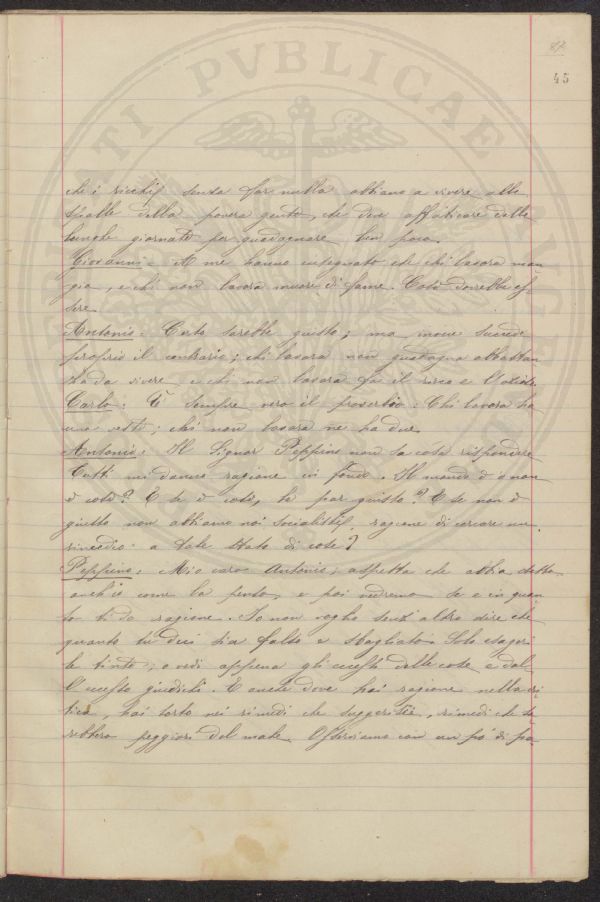 87
45
che i ricchi senza far nulla abbiano a vivere alle
spalle della povera gente, che deve affaticare delle
lunghe giornate per guadagnare ben poco.
Giovanni: A me hanno insegnato che chi lavora man
gia, e chi non lavora muore di fame. Così dovrebbe es-
sere.
Antonio: Certo sarebbe giusto; ma invece succede
proprio il contrario; chi lavora non guadagna abbastan
za da vivere e chi non lavora fa il ricco e
Carlo: È sempre vero il proverbio: Chi lavora ha
una veste; chi non lavora ne ha due.
Antonio: Il Signor Peppino non sa cosa rispondere
Tutti mi danno ragione in fondo. Il mondo è o non
è così? E se è così, le par giusto? E se non è
giusto non abbiamo noi socialisti ragione di cercare un
rimedio a tale stato di cose?
Peppino: Mio caro Antonio, aspetta che abbia detto
anch'io come la penso, e poi vedremo se e in quan
to ti do ragione. Io non voglio senz'altro dire che
quanto tu dici sia falso e sbagliato. Solo esageri
le tinte, e vedi appena gli eccessi delle cose e dal
l'eccesso giudichi. E anche dove hai ragione nella cri
tica, hai torto nei rimedi che suggerisci, rimedi che sa
rebbero peggiori del male. Osserviamo con un pò di pa
PUBLICAE